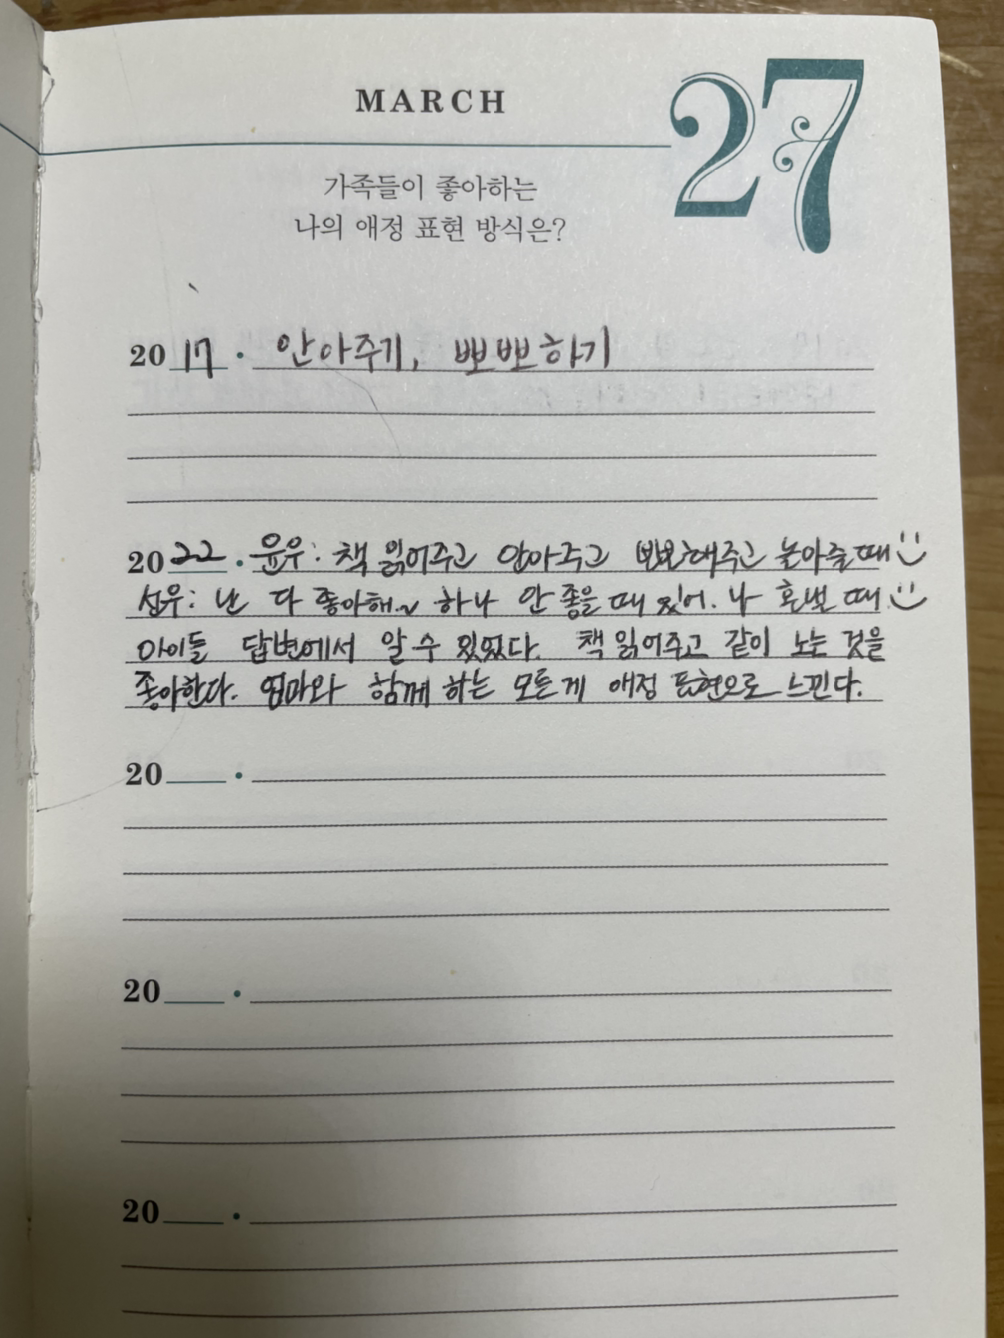 MARCH 27
가족들이 좋아하는
나의 애정 표현 방식은?
2017 · 안아주기, 뽀뽀하기
2022 · 윤우: 책 읽어주고 안아주고 뽀뽀해주고 놀아줄때
선우: 난 다 좋아해~ 하나 안 좋을 때 있어. 나 혼낼 때
아이들 답변에서 알 수 있었다. 책 읽어주고 같이 노는 것을
좋아한다. 엄마와 함께 하는 모든게 애정 표현으로 느낀다.
20 ·
20 ·
20 ·